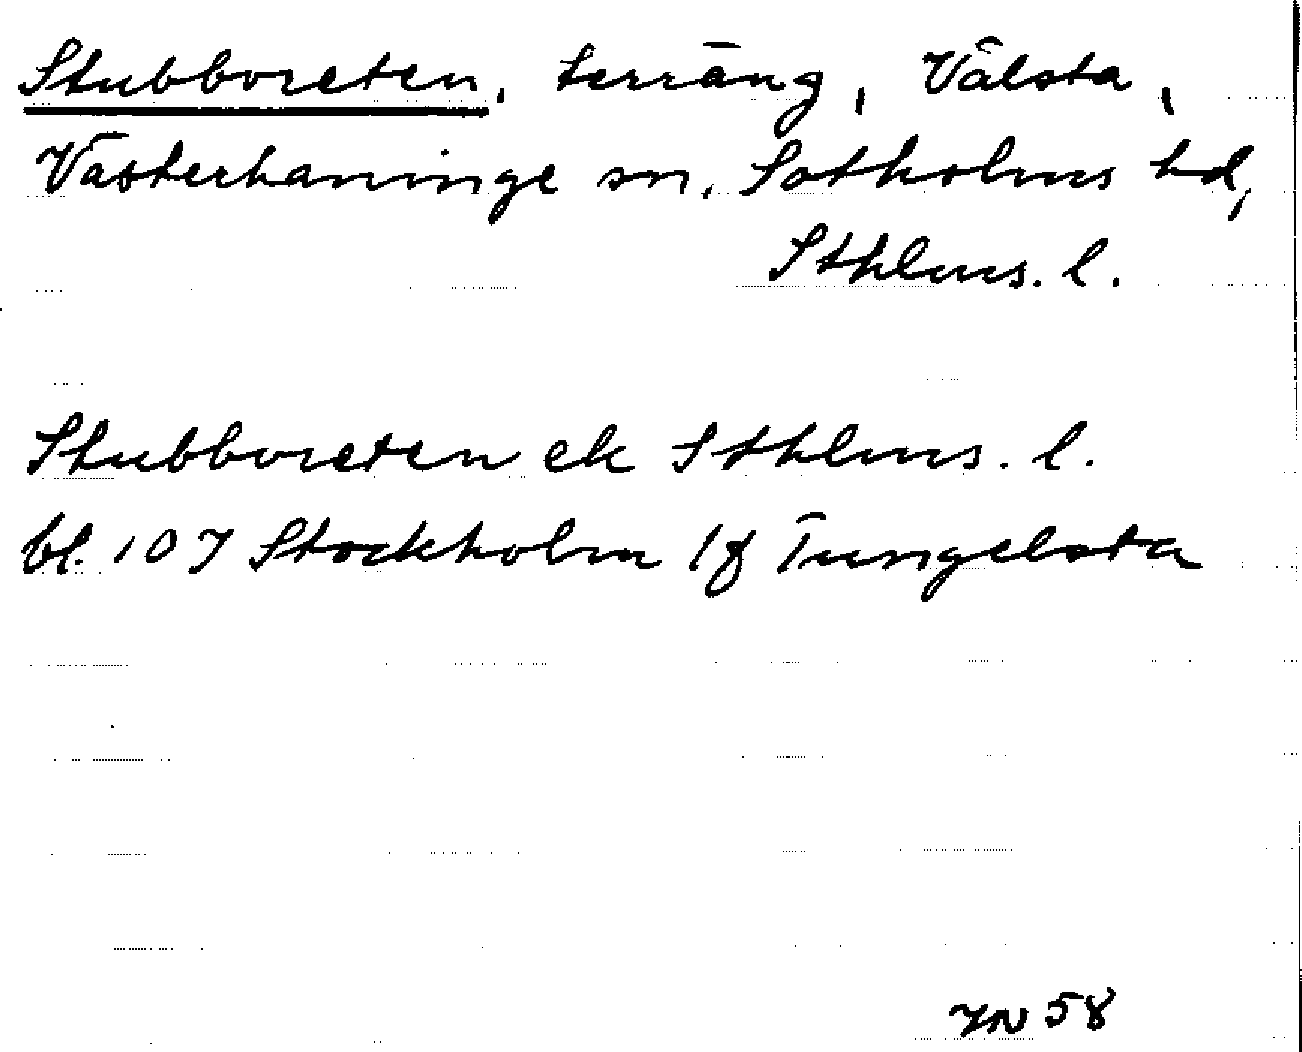 Stubboreten, terräng, Vålsta,
Västerhaninge sn, Sotholms hd,
Sthlms. l.
Stubboreten ek Sthlms. l.
bl. 107 Stockholm 1f Tungelsta
58